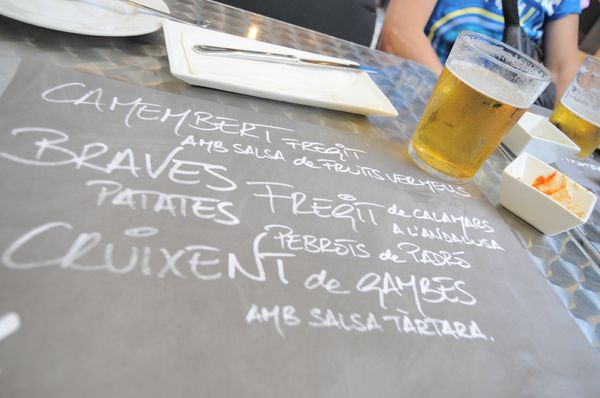 CAMEMBERT FREGIT
AMB SALSA de FRUITS VERMELLS
BRAVES FREGIT de CALAMARS
PATATES A L'ANDALUSA
PEBROTS de PADRÓ
CRUIXENT de GAMBES
AMB SALSA TÀRTARA.